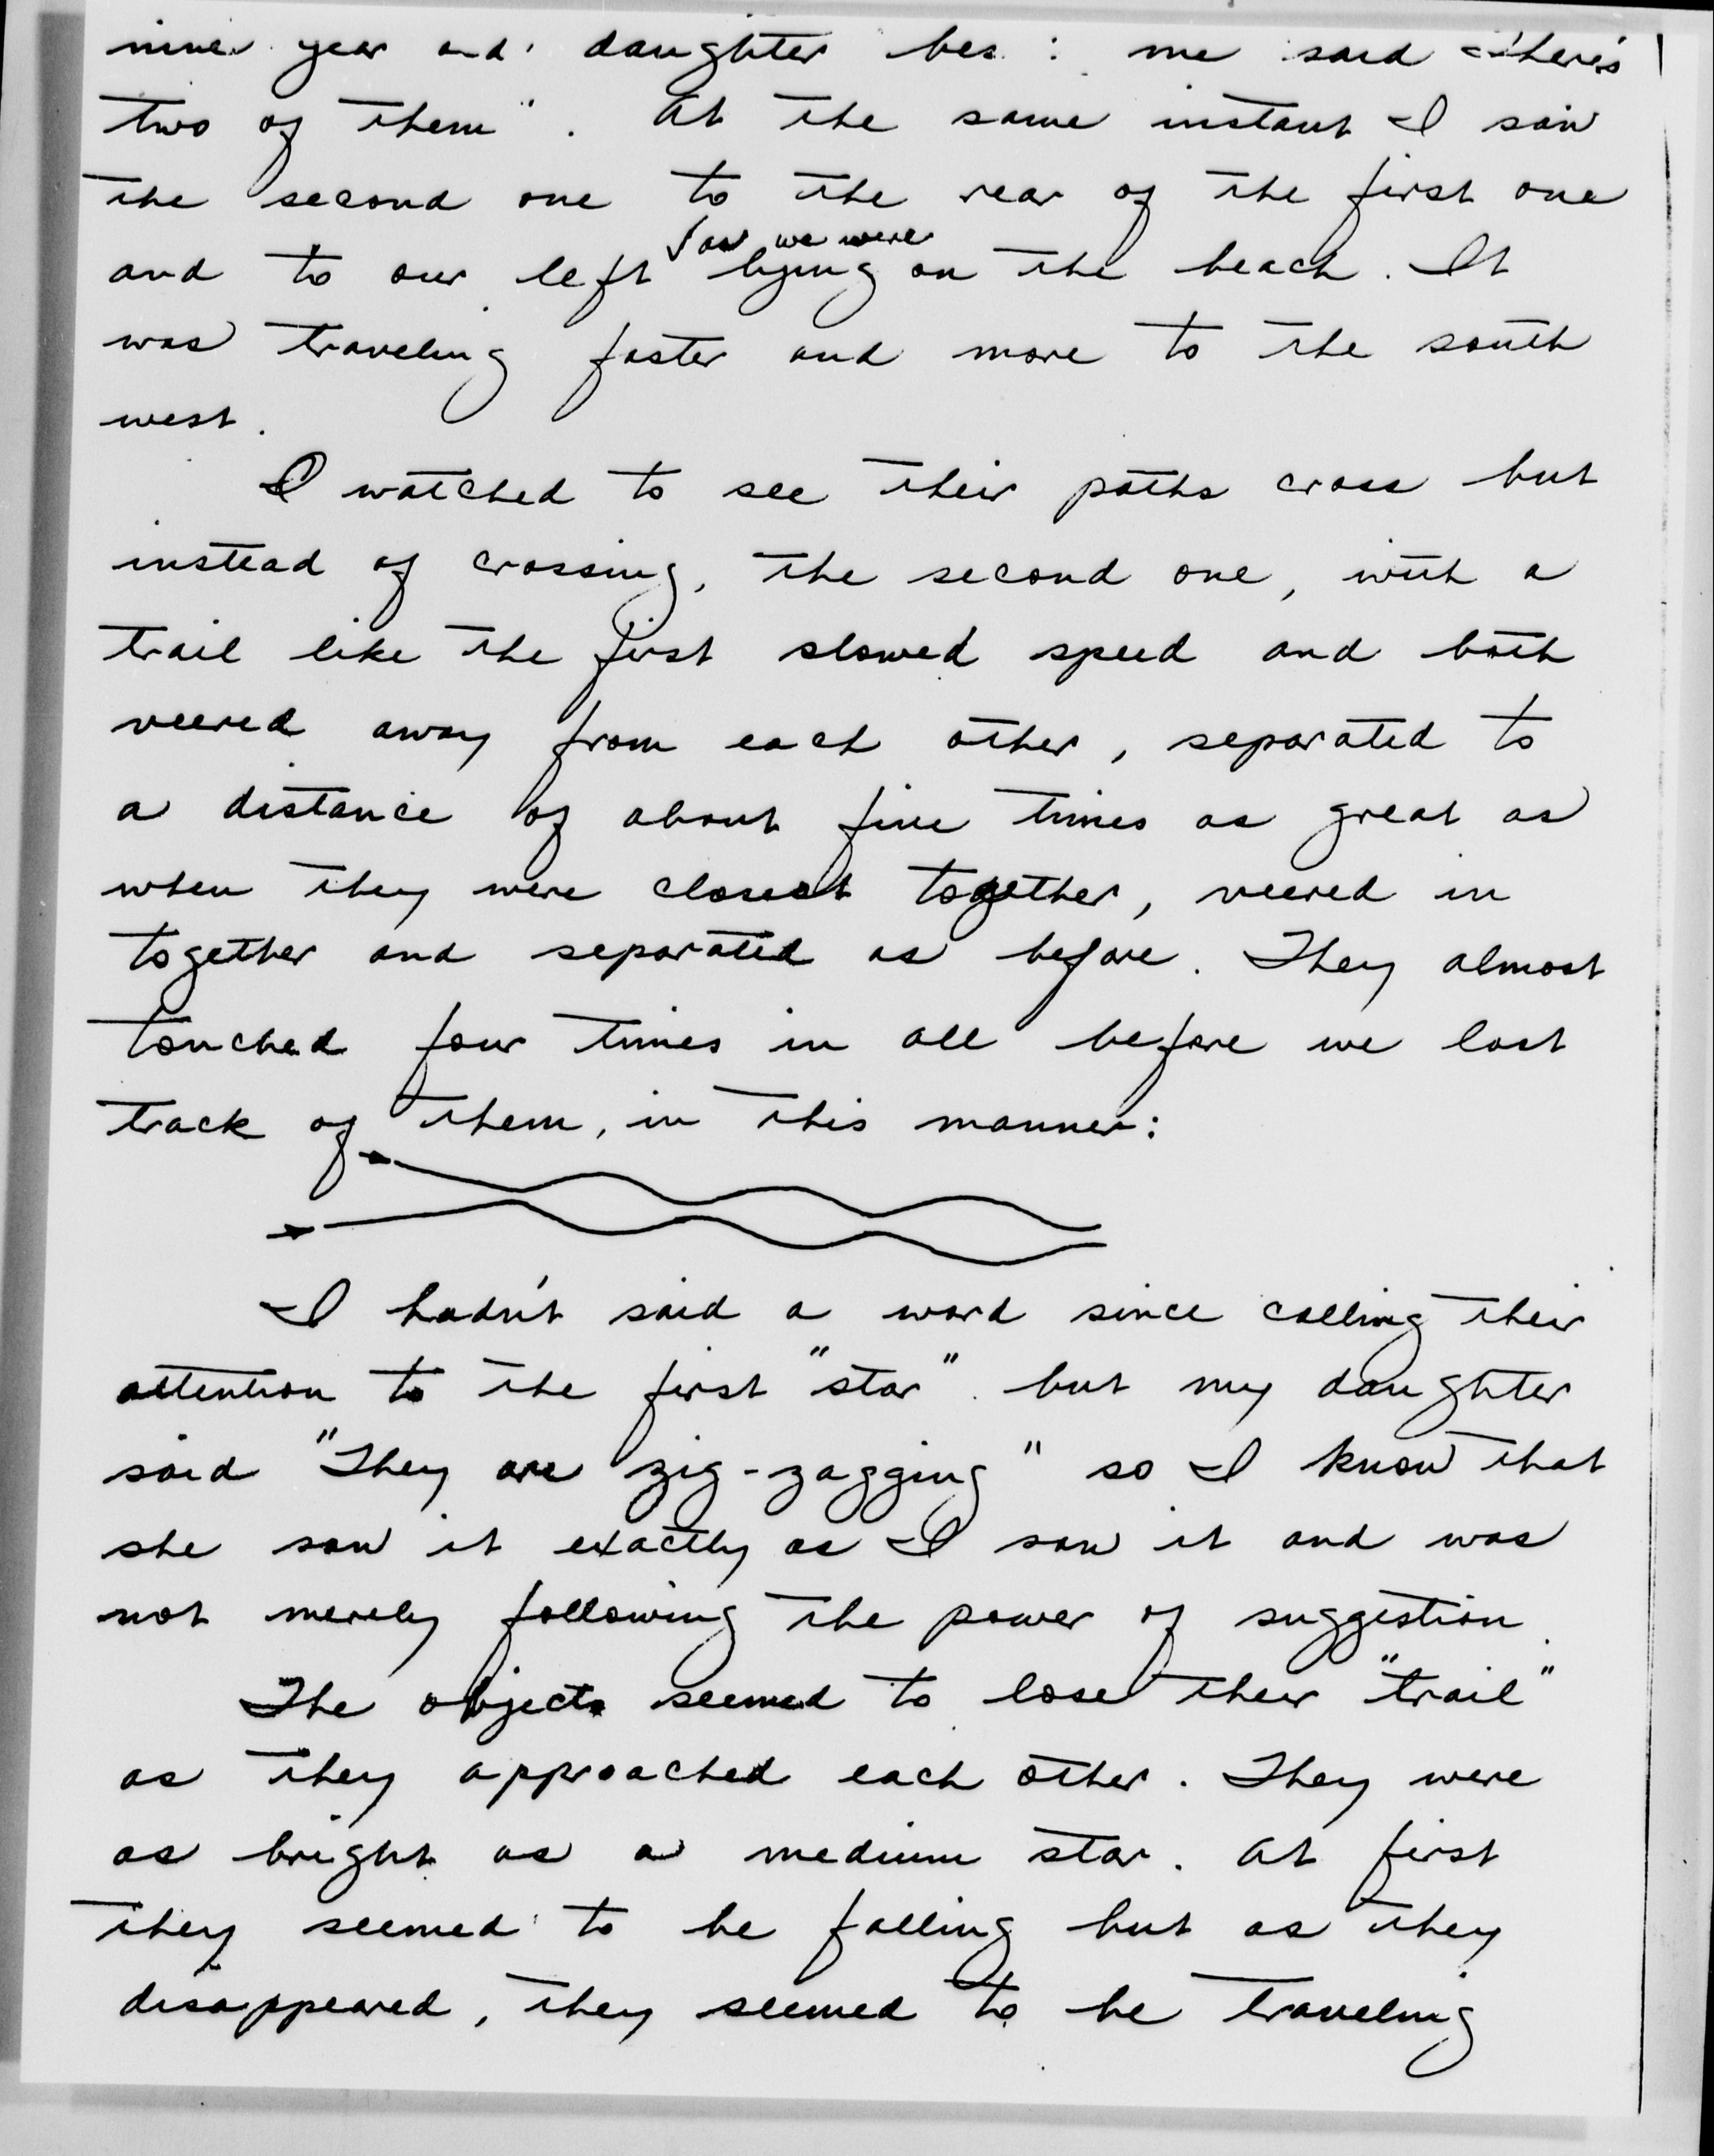 nine year old daughter bes me said "there's
two of them". At the same instant I saw
the second one to the rear of the first one
and to our left as we were lying on the beach. It
was traveling faster and more to the south
west.
I watched to see their paths cross but
instead of crossing, the second one, with a
trail like the first slowed speed and both
veered away from each other, separated to
a distance of about five times as great as
when they were closest together, veered in
together and separated as before. They almost
touched four times in all before we lost
track of them, in this manner:
I hadn't said a word since calling their
attention to the first "star". but my daughter
said "They are zig-zagging" so I know that
she saw it exactly as I saw it and was
not merely following the power of suggestion.
The objects seemed to lose their "trail"
as they approached each other. They were
as bright as a medium star. At first
they seemed to be falling but as they
disappeared, they seemed to be traveling